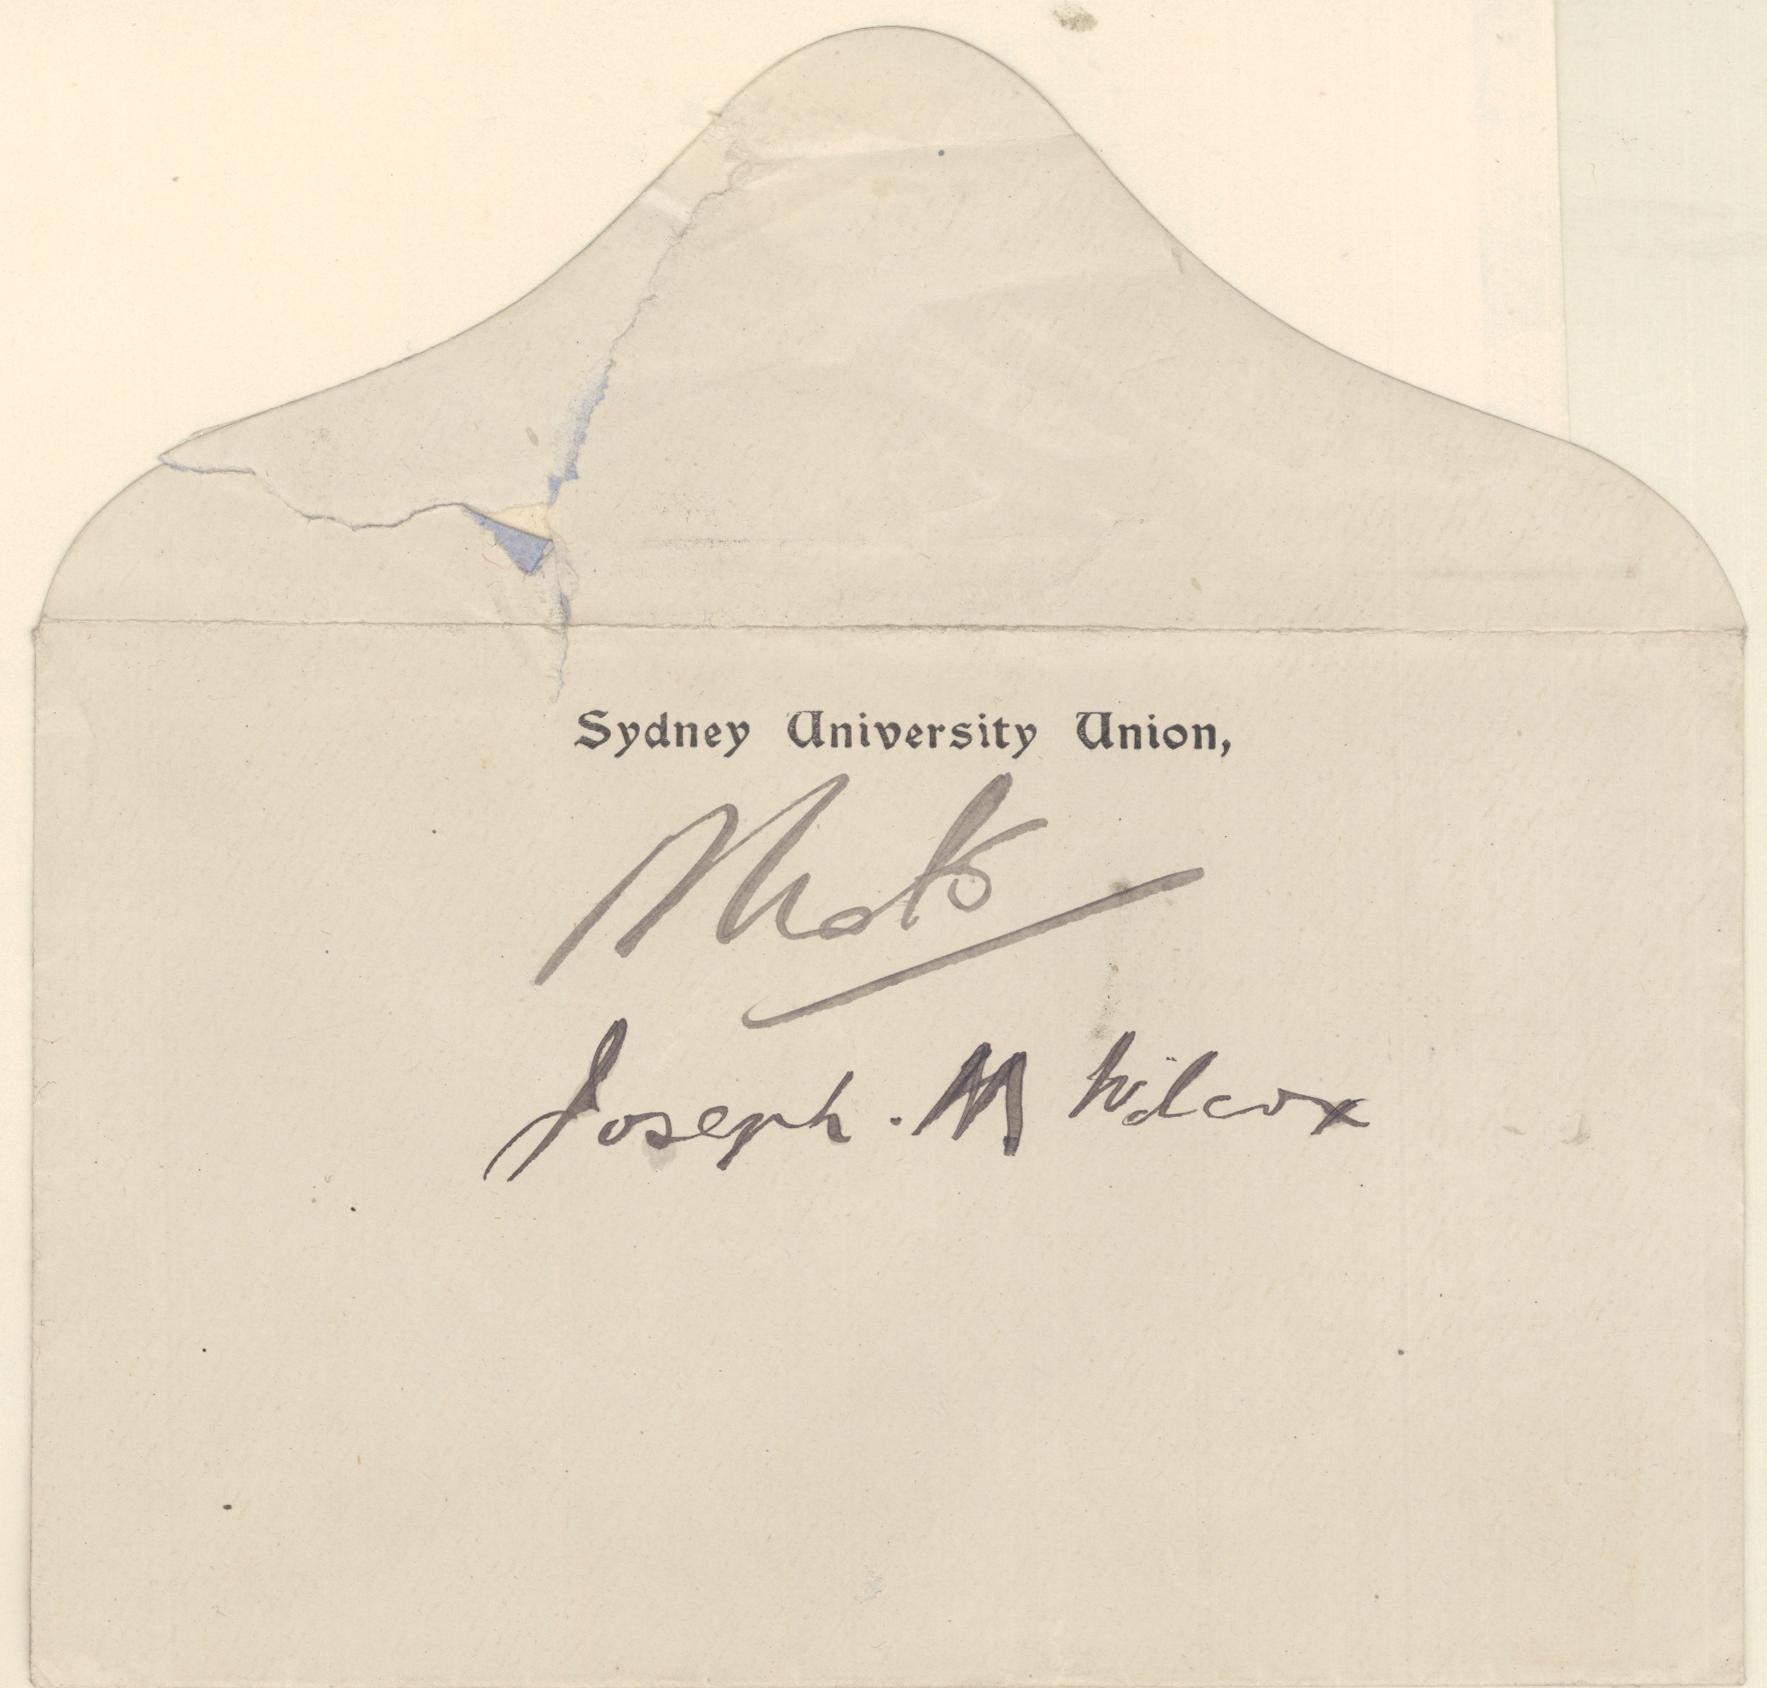 Sydney University Union,
Joseph. M Wilcox